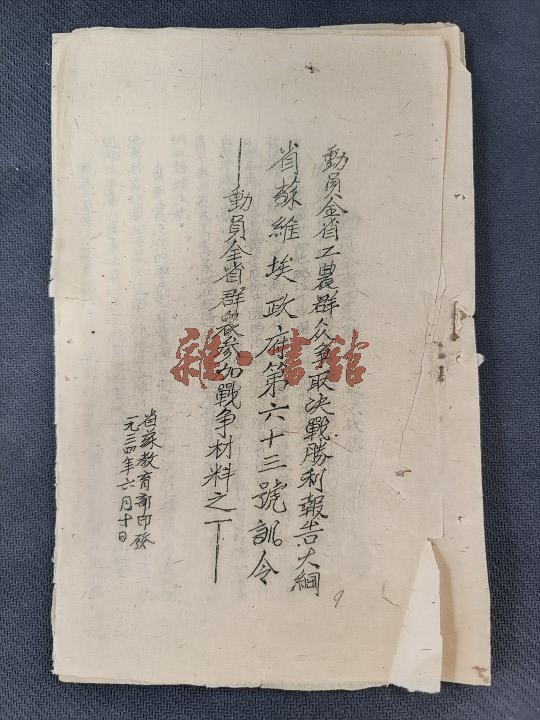 動員全省工農群众争取决戰勝利報告大綱
省蘇維埃政府第六十三號訓令
——動員全省群農参加戰争材料之一——
省蘇教育部印發
一九三四年六月十日
9
雜·書館